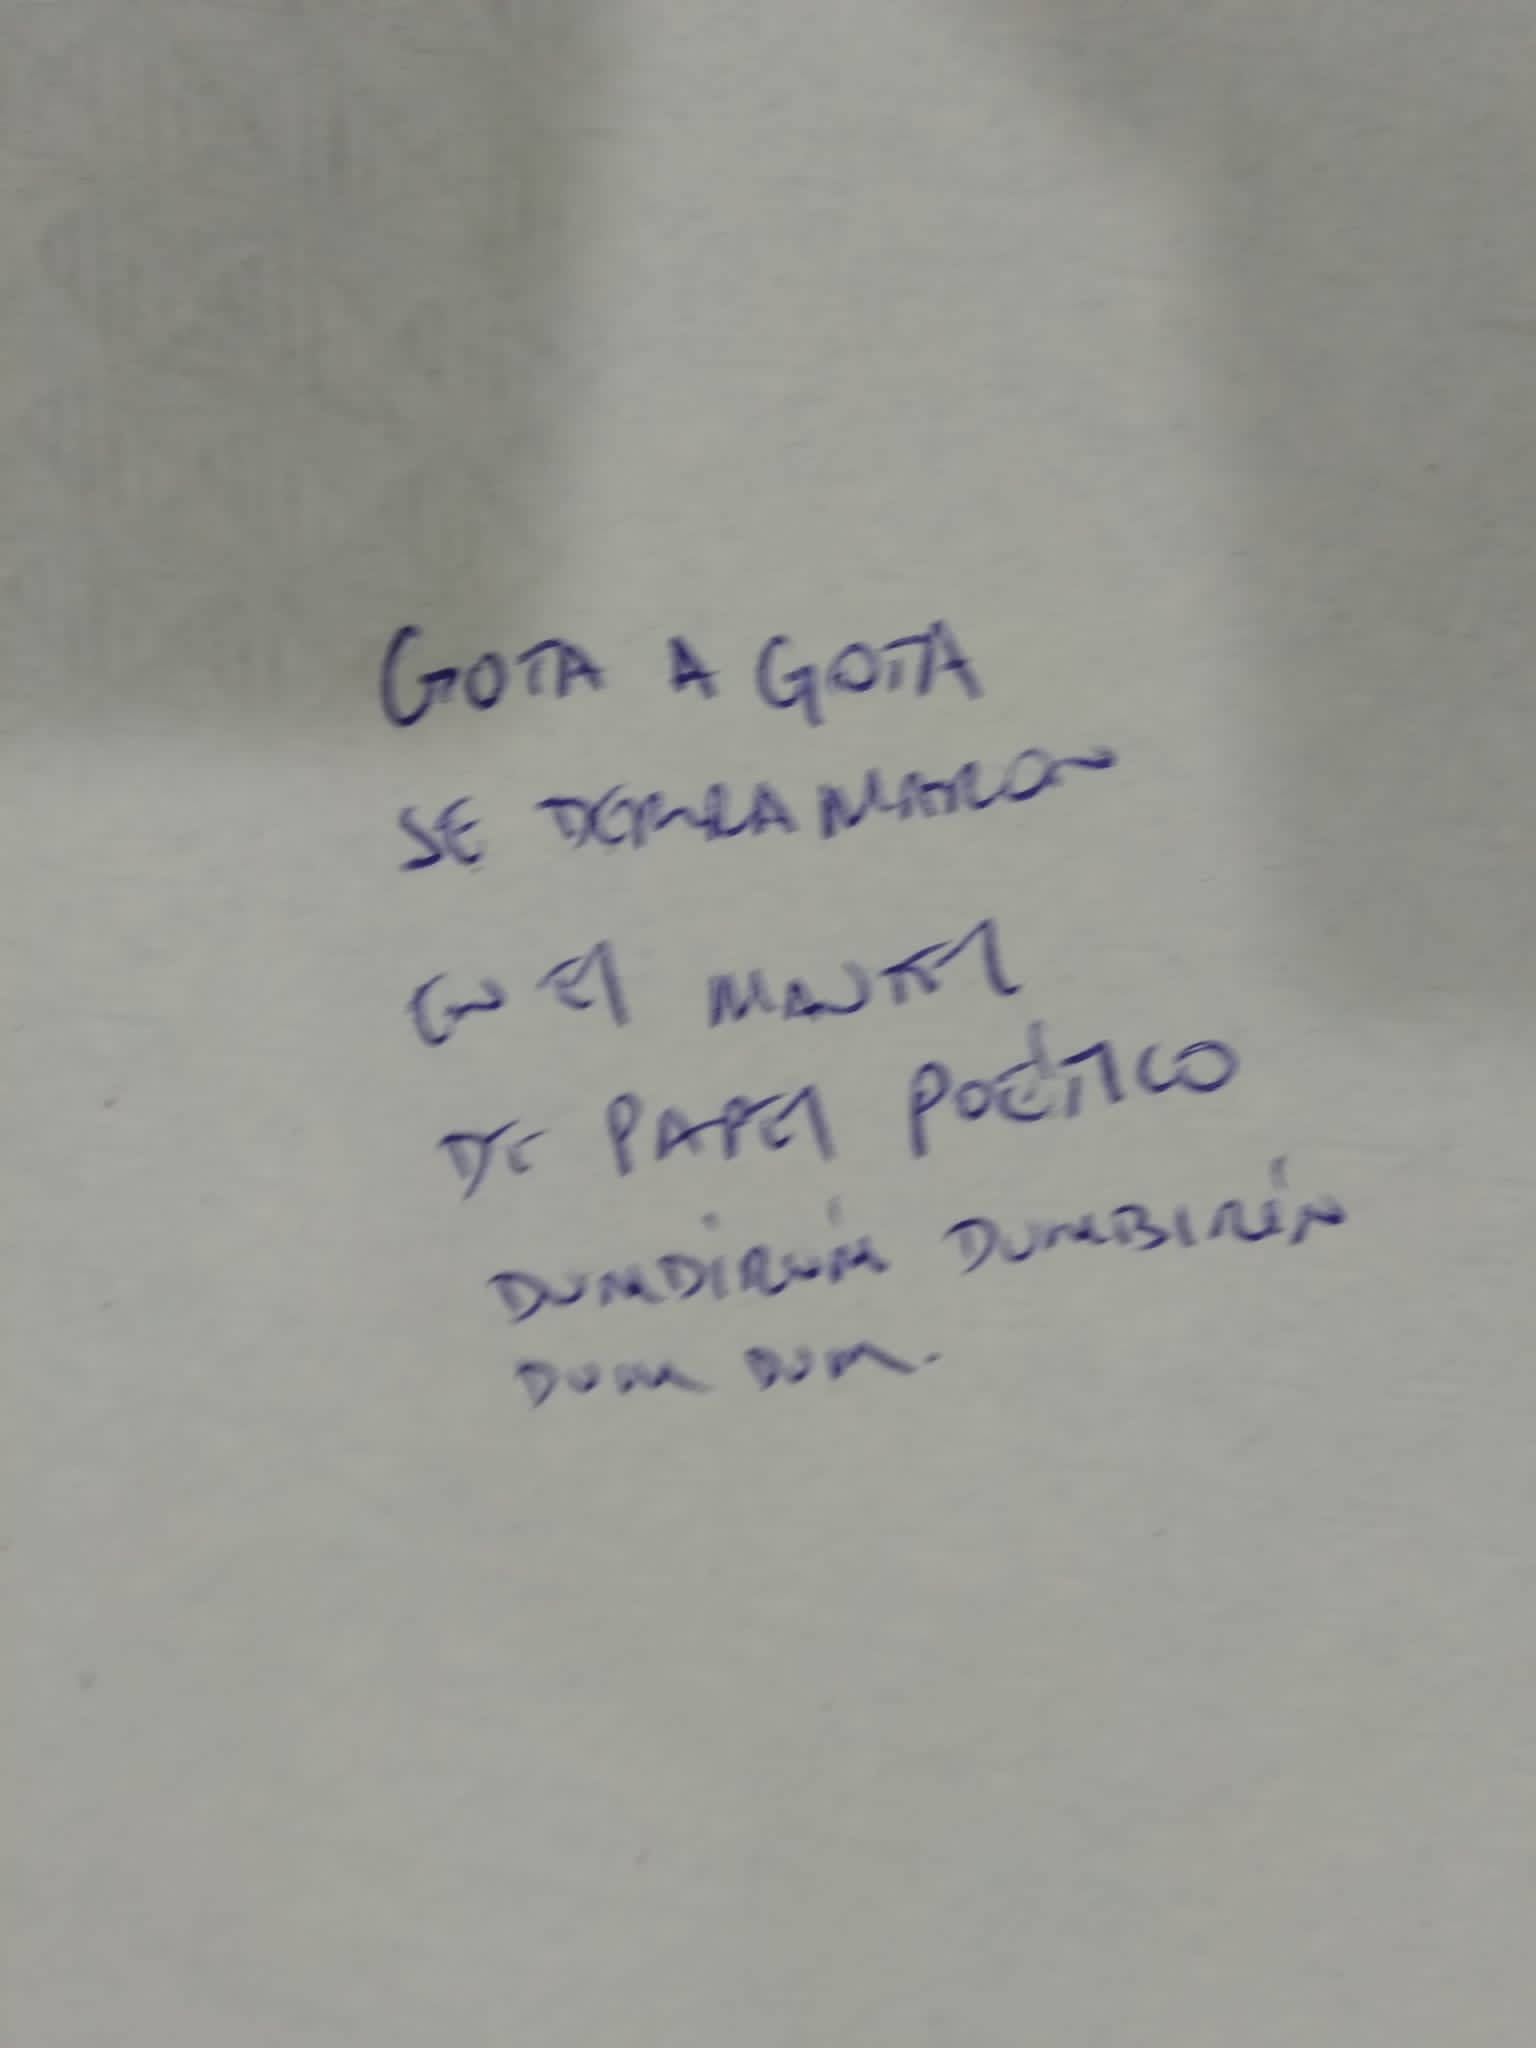 GOTA A GOTA
SE DERRAMARON
EN El MANTEL
DE PAPEl POÉTICO
DUMDIRÚM DUMBIRÍN
DUM DUM.